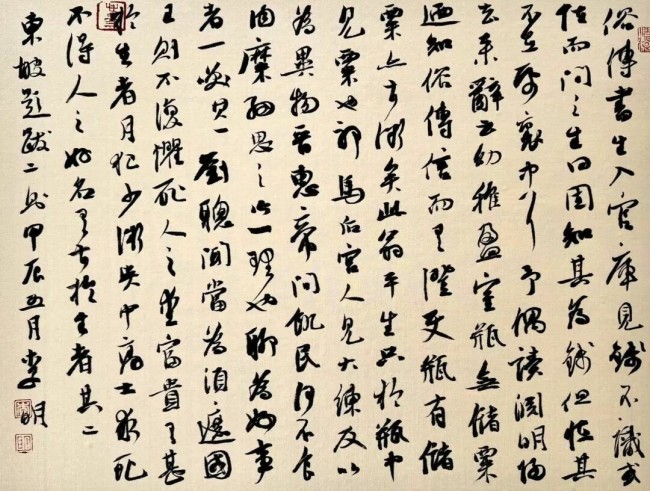 俗傳書生入官庫見錢不識或
怪而問之生曰固知其為錢但怪其
不在紙裹中耳予偶讀淵明歸
去來辭云幼稚盈室瓶無儲粟
迺知俗傳信而有證使瓶有儲
粟亦甚微矣此翁平生只於瓶中
見粟也耶馬后宮人見大練反以
為異物晉惠帝問飢民何不食
肉糜細思之皆一理也聊為好事
者一笑其一劉聰聞當為須遮國
王則不復懼死人之愛富貴有甚
於生者月犯少微吳中高士求死
不得人之好名有甚於生者其二
東坡題跋二則甲辰五月李明